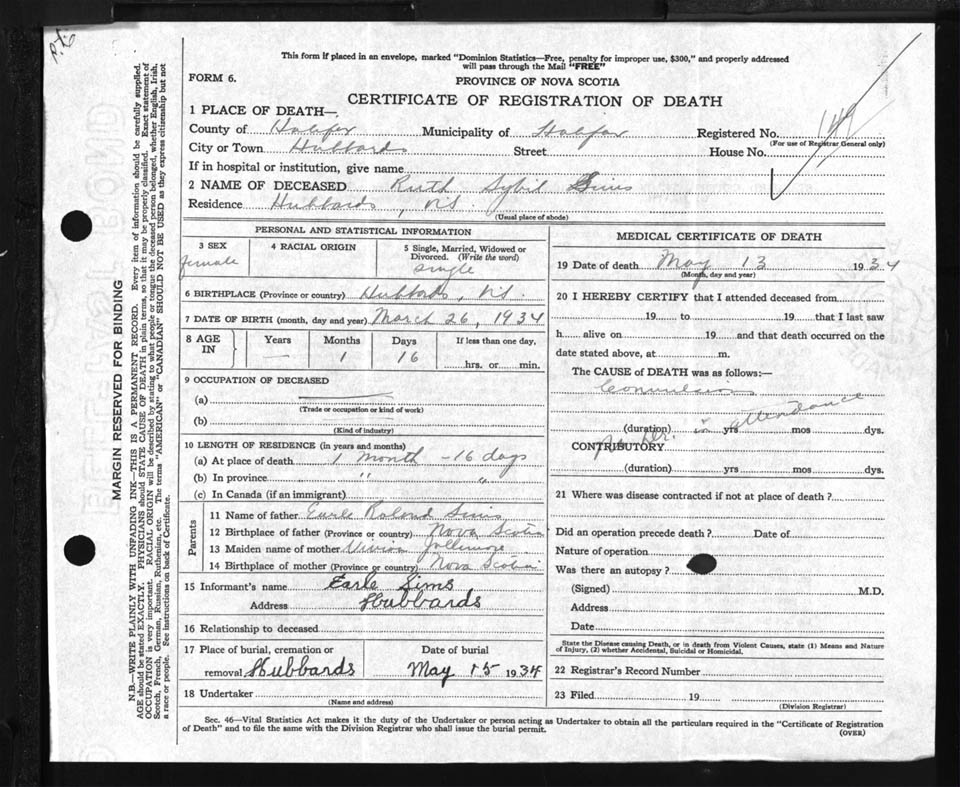 This form if placed in an envelope, marked "Dominion Statistics—Free, penalty for improper use, $300," and properly addressed
will pass through the Mail "FREE"
FORM 6.
PROVINCE OF NOVA SCOTIA
CERTIFICATE OF REGISTRATION OF DEATH
1 PLACE OF DEATH—
County of Halifax Municipality of Halifax Registered No. 149
(For use of Registrar General only)
City or Town Hubbards Street House No.
If in hospital or institution, give name
2 NAME OF DECEASED Ruth Sybil Sims
Residence Hubbards, N.S.
(Usual place of abode)
PERSONAL AND STATISTICAL INFORMATION
3 SEX female
4 RACIAL ORIGIN
5 Single, Married, Widowed or Divorced. (Write the word) single
6 BIRTHPLACE (Province or country) Hubbards, N.S.
7 DATE OF BIRTH (month, day and year) March 26, 1934
8 AGE IN Years — Months 1 Days 16 If less than one day, hrs. or min.
9 OCCUPATION OF DECEASED
(a)
(Trade or occupation or kind of work)
(b)
(Kind of industry)
10 LENGTH OF RESIDENCE (in years and months)
(a) At place of death 1 month - 16 days
(b) In province " "
(c) In Canada (if an immigrant)
Parents
11 Name of father Earle Roland Sims
12 Birthplace of father (Province or country) Nova Scotia
13 Maiden name of mother Vivian Jollimore
14 Birthplace of mother (Province or country) Nova Scotia
15 Informant's name Earle Sims
Address Hubbards
16 Relationship to deceased
17 Place of burial, cremation or removal Hubbards
Date of burial May 15 1934
18 Undertaker
(Name and address)
MEDICAL CERTIFICATE OF DEATH
19 Date of death May 13 1934
(Month, day and year)
20 I HEREBY CERTIFY that I attended deceased from
19 to 19 that I last saw
h alive on 19 and that death occurred on the
date stated above, at m.
The CAUSE of DEATH was as follows:—
Convulsions
(duration) yrs mos dys.
No Dr. in attendance
CONTRIBUTORY
(duration) yrs mos dys.
21 Where was disease contracted if not at place of death?
Did an operation precede death? Date of
Nature of operation
Was there an autopsy?
(Signed) M.D.
Address
Date
State the Disease causing Death, or in death from Violent Causes, state (1) Means and Nature
of Injury, (2) whether Accidental, Suicidal or Homicidal.
22 Registrar's Record Number
23 Filed 19
(Division Registrar)
Sec. 46—Vital Statistics Act makes it the duty of the Undertaker or person acting as Undertaker to obtain all the particulars required in the "Certificate of Registration
of Death" and to file the same with the Division Registrar who shall issue the burial permit.
(OVER)
MARGIN RESERVED FOR BINDING
N.B.—WRITE PLAINLY WITH UNFADING INK—THIS IS A PERMANENT RECORD. Every item of information should be carefully supplied.
AGE should be stated EXACTLY. PHYSICIANS should STATE CAUSE OF DEATH in plain terms, so that it may be properly classified. Exact statement of
OCCUPATION is very important. RACIAL ORIGIN will be described by stating to what people or tongue the deceased person belonged, whether English, Irish,
Scotch, French, German, Russian, Ruthenian, etc. The terms "AMERICAN" or "CANADIAN" SHOULD NOT BE USED as they express citizenship but not
a race or people. See instructions on back of Certificate.